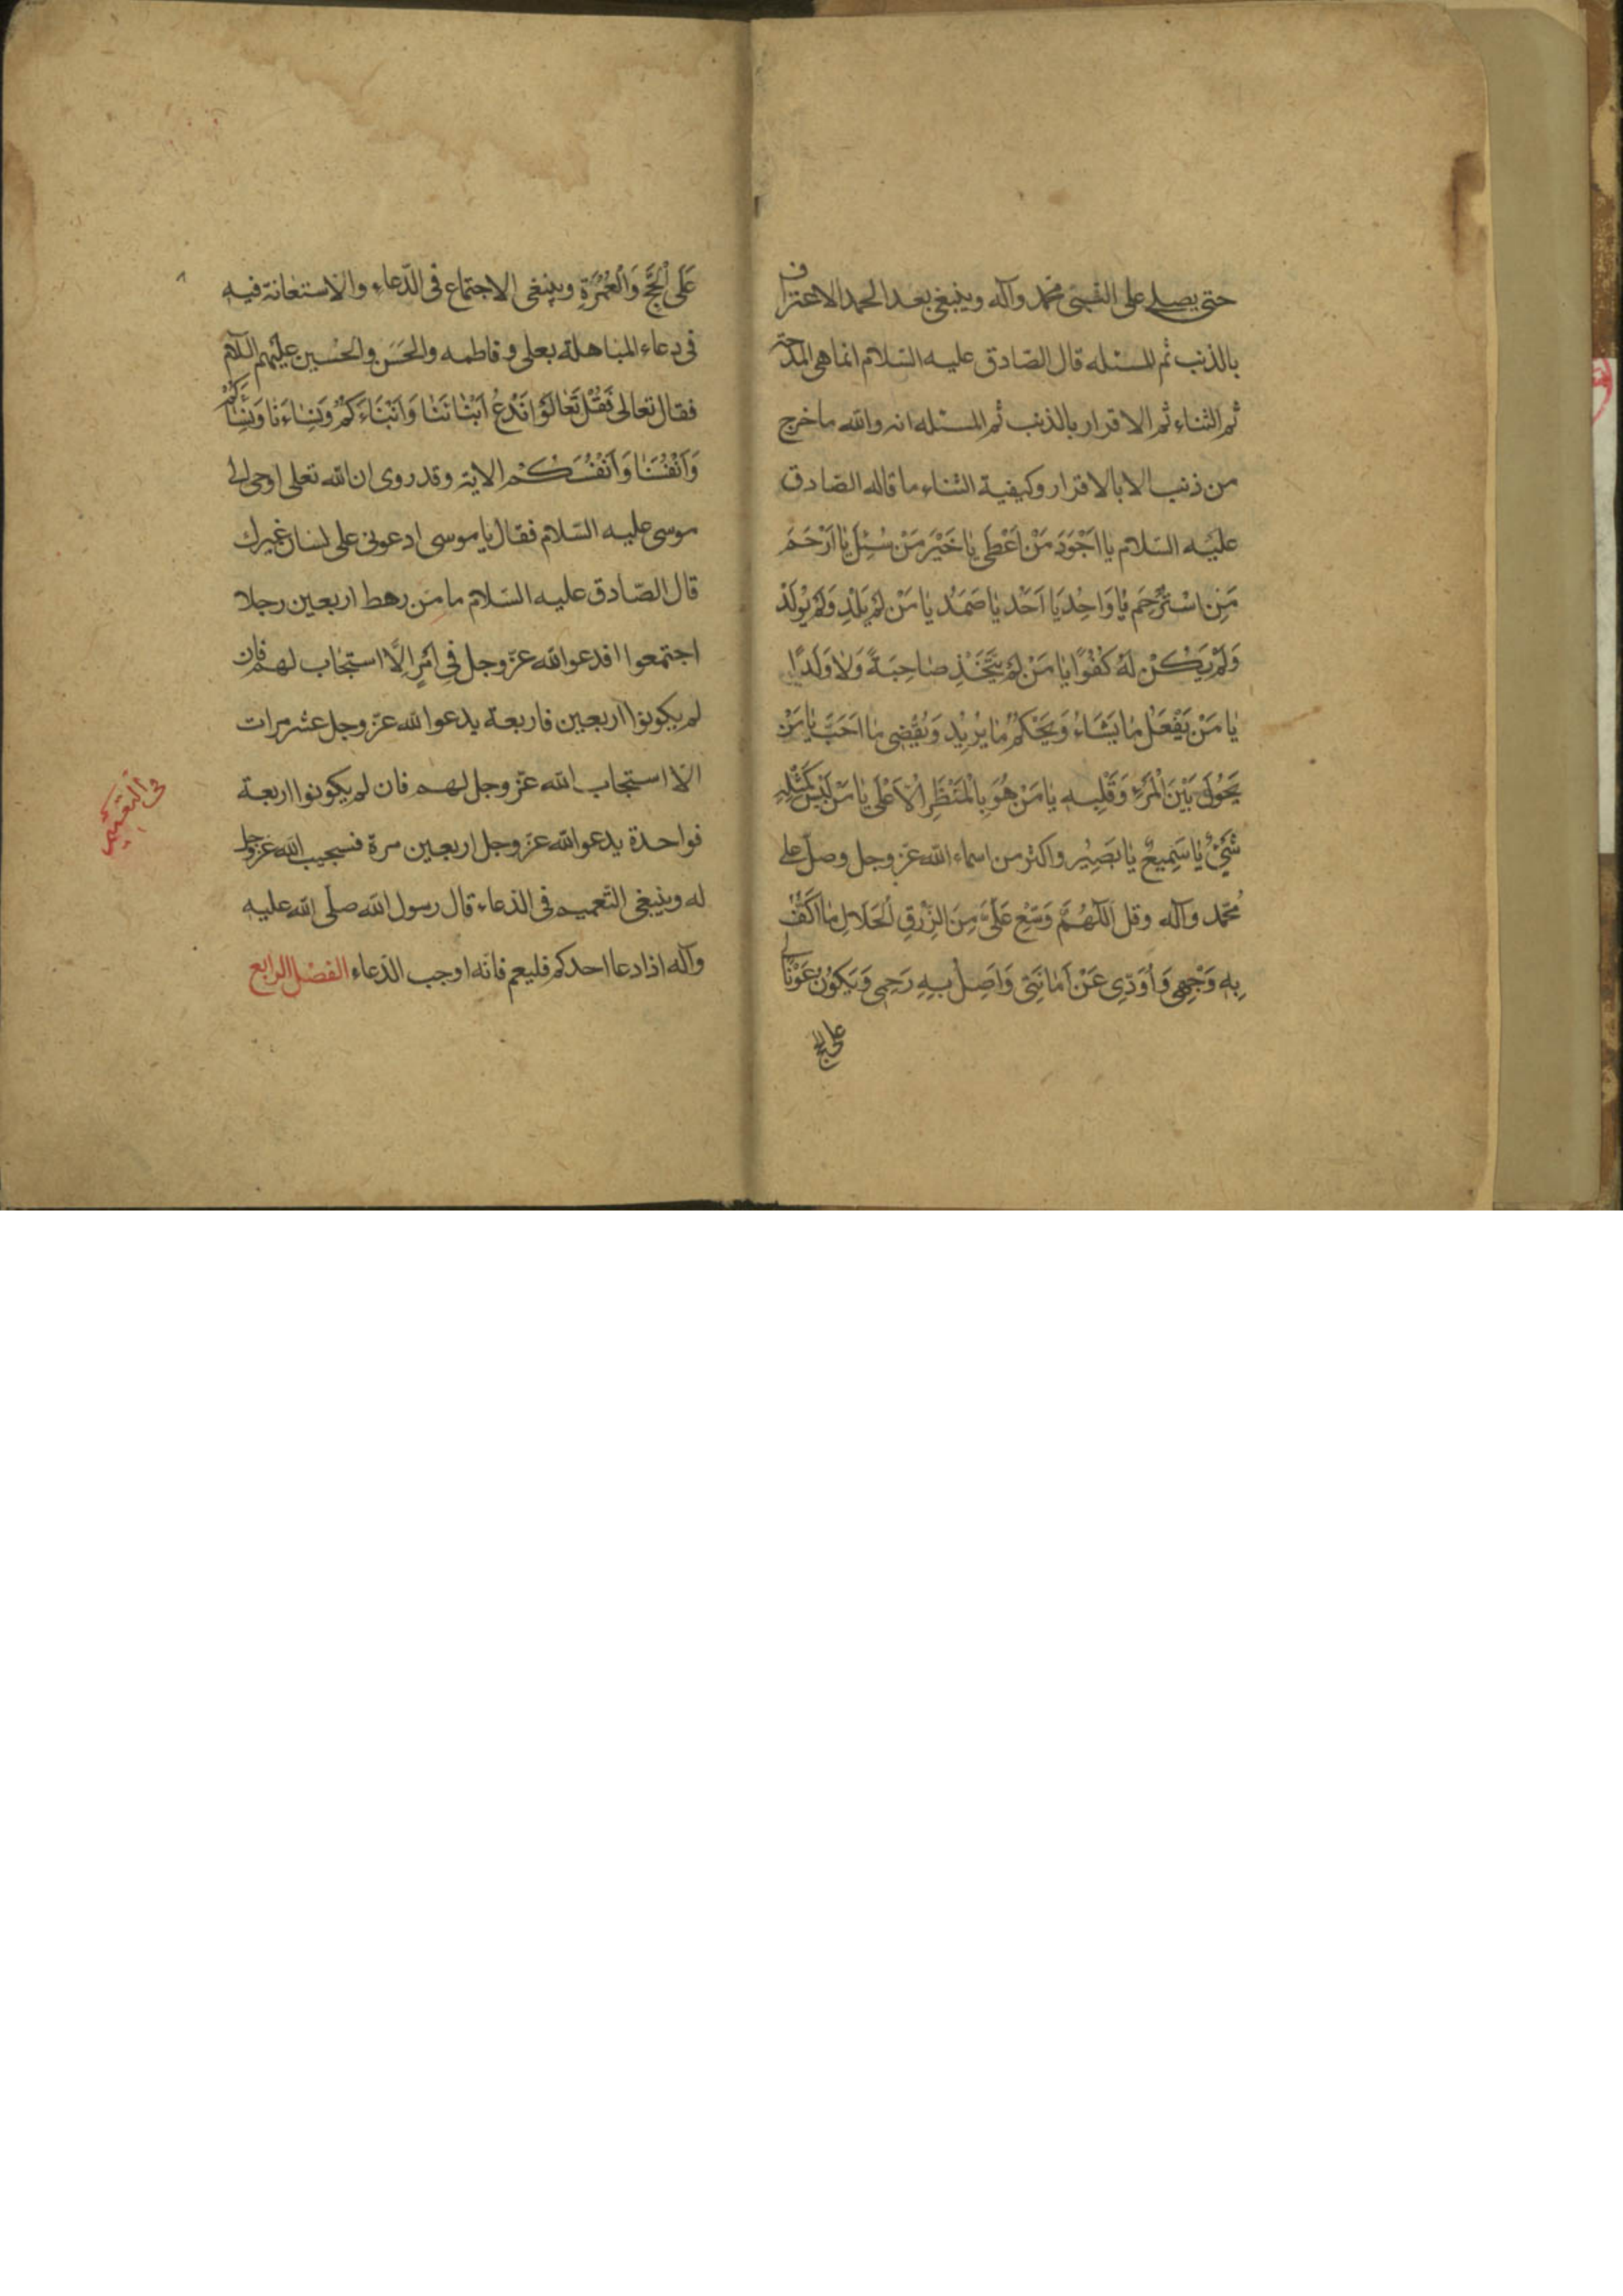 حتى يصلے على النبى محمد وآله وينبغى بعد الحمد الاعتراف
بالذنب ثم المسئله قال الصّادق عليه السّلام انما هى المدحة
ثم الثناء ثم الاقرار بالذنب ثم المسئله انه والله ما خرج
من ذنب الا بالاقرار وكيفية الثناء ما قاله الصّادق
عليه السّلام يا اَجْوَدَ مَنْ اَعْطى يا خَيْرَ مَنْ سُئِلَ يا اَرْحَمَ
مَنِ اسْتُرْحِمَ يا وَاحِدُ يَا اَحَدُ يا صَمَدُ يا مَنْ لَمْ يَلِدْ وَلَمْ يُولَدْ
وَلَمْ يَكُنْ لَهُ كُفُوًا يا مَنْ لَمْ يَتَّخِذْ صاحِبَةً وَلا وَلَدًا
يا مَنْ يَفْعَلُ ما يَشَاءُ وَيَحْكُمُ ما يُرِيْدُ وَيُقْضِى ما اَحَبَّ يا مَنْ
يَحُولُ بَيْنَ الْمَرْءِ وَقَلْبِهِ يا مَنْ هُوَ بِالْمَنْظَرِ الْاَعْلى يا مَنْ لَيْسَ كَمِثْلِهِ
شَيْءٌ يا سَمِيعُ يا بَصِيْرُ واكثر من اسماء الله عزّ وجل وصلّ على
مُحمّد وآله وقل اَللّهُمَّ وَسِّعْ عَلَىَّ مِنَ الرِّزْقِ الْحَلَالِ ما اَكُفُّ
بِهِ وَجْهِى وَاُوَدِّى عَنْ اَمانَتِى وَاَصِلُ بِهِ رَحِمِى وَيَكُونُ عَوْنًا لِى
على الحج
عَلَى الْحَجِّ وَالْعُمْرَةِ وينبغى الاجتماع فى الدّعاء والاستعانة فيه
فى دعاء المباهلة بعلى وفاطمه والحَسَن والحُسين عليهم السّلام
فقال تعالى فَقُلْ تَعالَوْا نَدْعُ اَبْنائَنا وَاَبْنَاءَكُمْ وَنِساءَنا وَنِسَائَكُمْ
وَاَنْفُسَنا وَاَنْفُسَكُمْ الاية وقد روى ان الله تعلى اوحى الى
موسى عليه السّلام فقال يا موسى ادعونى على لسان غيرك
قال الصّادق عليه السّلام ما من رهط اربعين رجلا
اجتمعوا افدعوا الله عزّ وجل فى اَمْرٍ اِلَّا استجاب لهم فان
لم يكونوا اربعين فاربعة يدعوا الله عزّ وجل عشر مرات
الّا استجاب الله عزّ وجل لهم فان لم يكونوا اربعة
فواحدة يدعو الله عزّ وجل اربعين مرة فسيجيب الله عزّ وجل
له وينبغى التّعميم فى الدعاء قال رسول الله صلّى الله عليه
وآله اذا دعا احدكم فليعم فانّه اوجب الدّعاء الفصل الرابع
فى التعميم